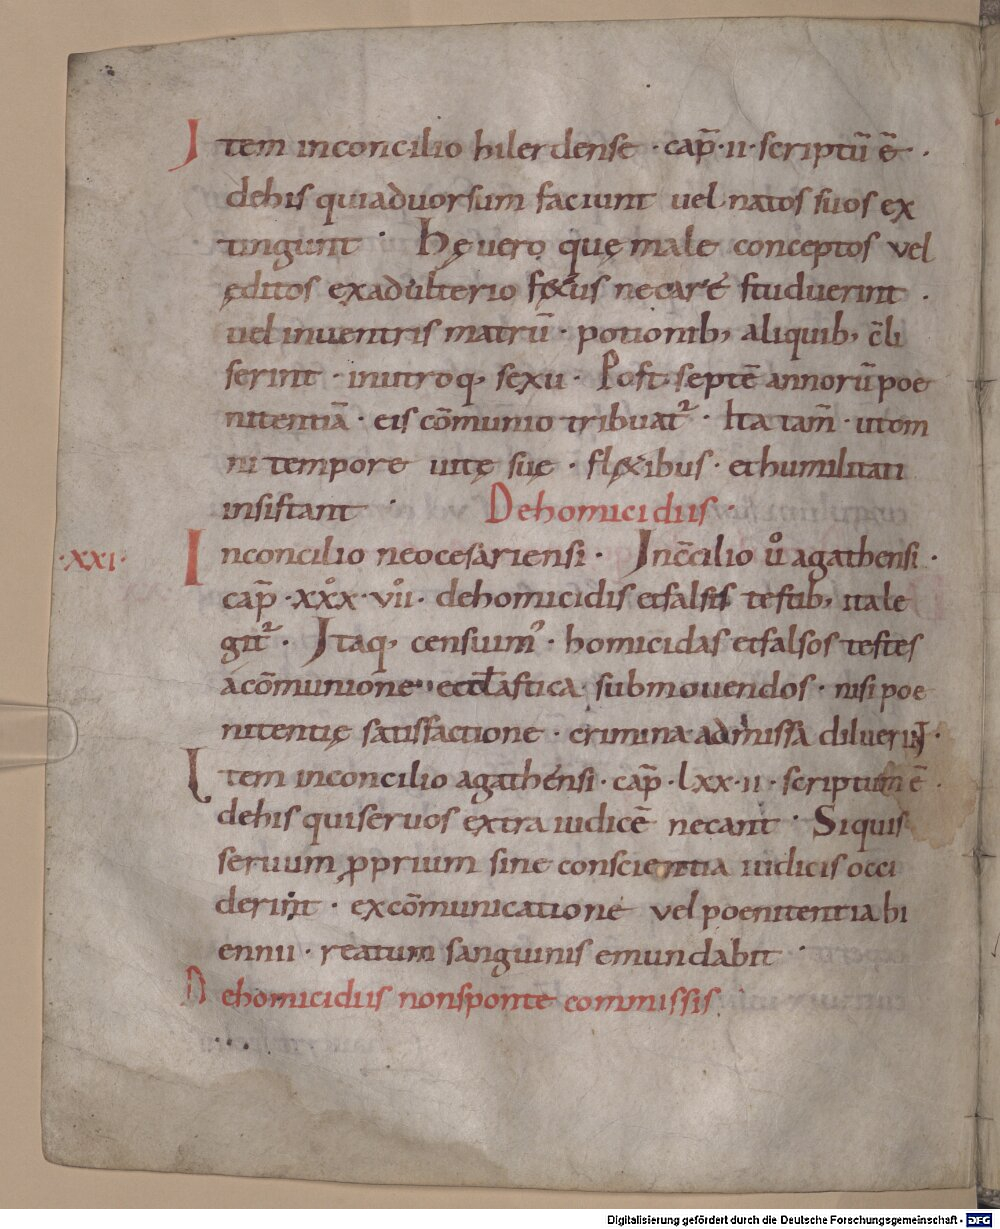 Item inconcilio hilerdense · cap̄ · ii · scriptū ē ·
dehis quiaduorsum faciunt vel natos suos ex
tingunt · Hę vero quę male conceptos vel
ęditos exadulterio fœtus necare studuerint ·
vel inventris matrū · potionib; aliquib; c̄li
serint · inutroq; sexu · Post septē annorū poe
nitentiā · eis cōmunio tribuat᷑ · Ita tam̄ · utom
ni tempore vitę suę · flęxibus · ethumilitati
insistant · Dehomicidiis ·
·XXI· Inconcilio neocesariensi · Inc̄cilio uͦ agathensi ·
cap̄ · xxͦx · vıͦı · dehomicidis etfalsis testib; itale
git᷑ · Itaq; censuimꝰ · homicidas etfalsos testes
acōmunione · eccl̄astica · submovendos · nisi poe
nitentię satisfactione · crimina admissa diluerint ·
Item inconcilio agathensi · cap̄ · lxx · ii · scriptum ē ·
dehis quiservos extra iudicē necant · Siquis
servum proprium sine conscientia iudicis occi
derint · excōmunicatione vel poenitentia bi
ennii · reatum sanguinis emundabit ·
Dehomicidiis nonsponte commissis ·
Digitalisierung gefördert durch die Deutsche Forschungsgemeinschaft - DFG